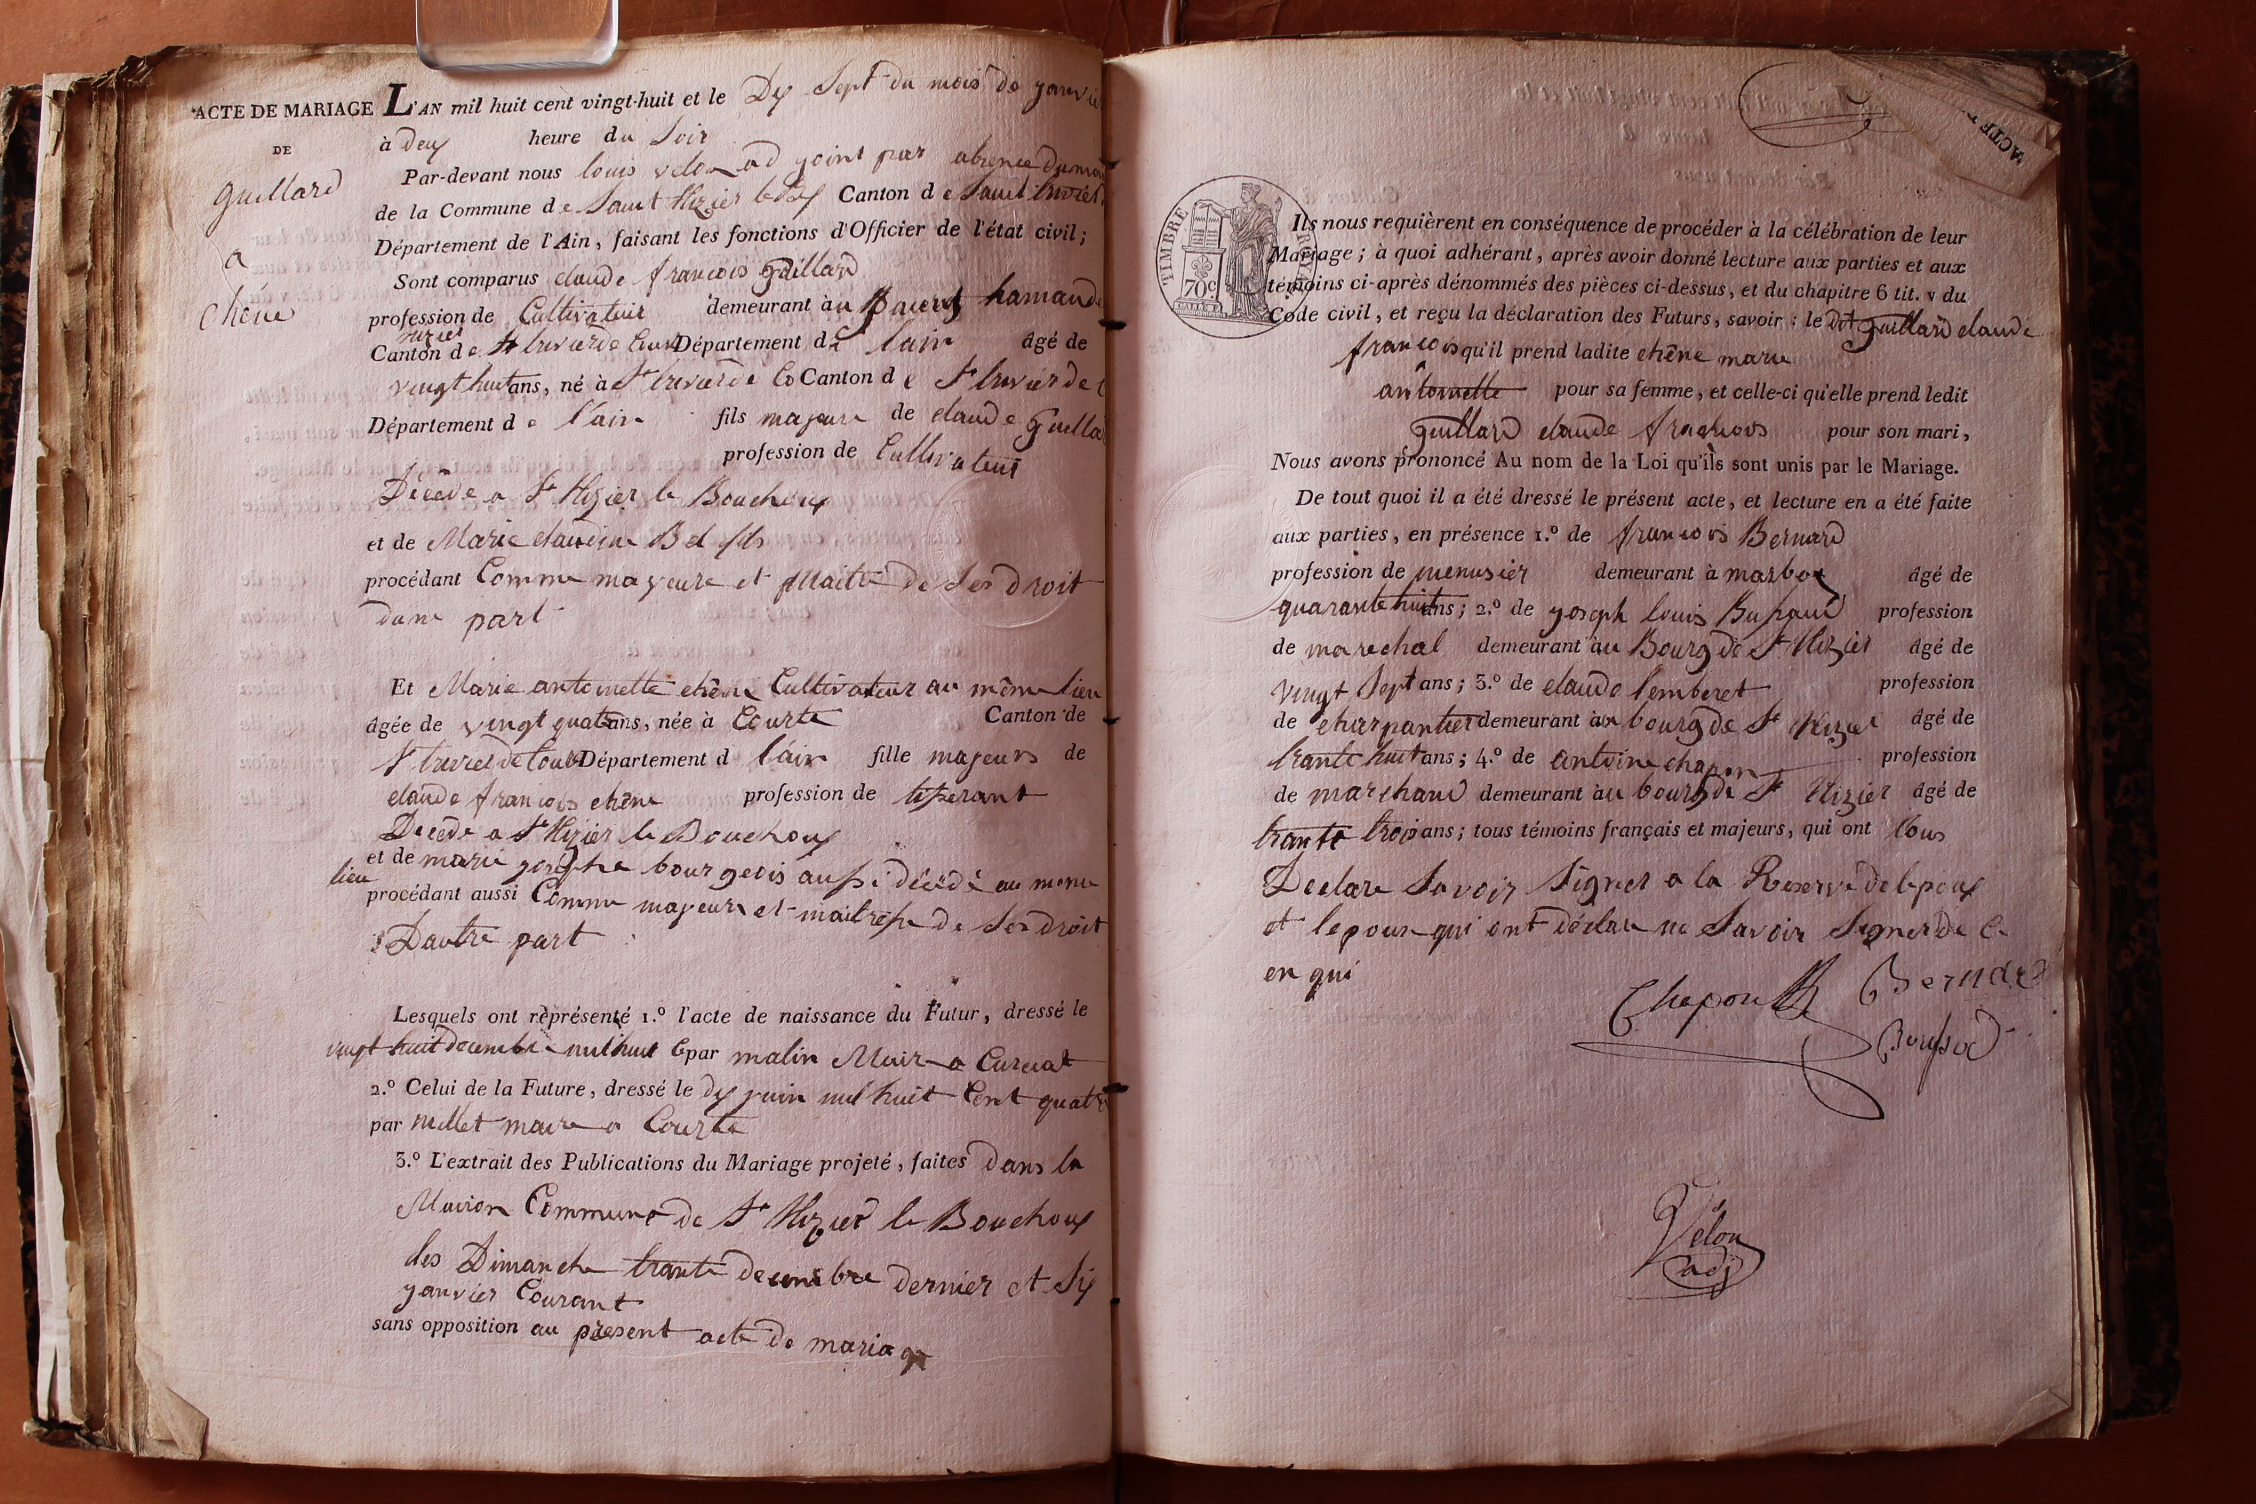 ACTE DE MARIAGE L'AN mil huit cent vingt-huit et le Dix Sept du mois de janvier
DE
à deux heure du Soir
Guillard
Par-devant nous louis velon ad joint par absence du
de la Commune de Saint Nizier le Canton de Saint
a
Département de l'Ain, faisant les fonctions d'Officier de l'état civil;
Chêne
Sont comparus claude francois Guillard
profession de Cultivateur demeurant au
nizier
Canton de St trivier de Département de l'ain âgé de
vingt huit ans, né à St trivier de Co Canton de St trivier de C
Département de l'ain fils majeur de claude Guillard
profession de Cultivateur
Décéde a St Nizier le Bouchoux
et de Marie claudine Bel fils
procédant Comme mayeure et Maitre de Ses droit
dune part
Et Marie antoinette chêne Cultivateur au même lieu
âgée de vingt quatre ans, née à Courte Canton de
St trivier de Cour Département d l'ain fille majeurs de
claude francois chêne profession de tisserant
Decede a St Nizier le Bouchoux
et de marie josephe bourgeois aussi décédé au meme
lieu
procédant aussi Comme mayeure et maitresse de Ses droit
Dautre part
Lesquels ont représenté 1.º l'acte de naissance du Futur, dressé le
vingt huit decembre mil huit C par malin Maire a Curciat
2.º Celui de la Future, dressé le dix juin mil huit Cent quatre
par millet maire a Courte
3.º L'extrait des Publications du Mariage projeté, faites dans la
Maison Commune de St Nizier le Bouchoux
les Dimanche trante decembre dernier et Six
janvier Courant
sans opposition au présent acte de mariage
TIMBRE ROYAL
70c
Ils nous requièrent en conséquence de procéder à la célébration de leur
Mariage; à quoi adhérant, après avoir donné lecture aux parties et aux
témoins ci-après dénommés des pièces ci-dessus, et du chapitre 6 tit. v du
Code civil, et reçu la déclaration des Futurs, savoir: le dit Guillard claude
francois qu'il prend ladite chêne marie
antoinette pour sa femme, et celle-ci qu'elle prend ledit
Guillard claude francois pour son mari,
Nous avons prononcé Au nom de la Loi qu'ils sont unis par le Mariage.
De tout quoi il a été dressé le présent acte, et lecture en a été faite
aux parties, en présence 1.º de francois Bernard
profession de menusier demeurant à marboz âgé de
quarante huit ans; 2.º de joseph louis profession
de marechal demeurant au Bourg de St Nizier âgé de
vingt Sept ans; 3.º de claude lemberet profession
de charpantier demeurant au bourg de St Nizier âgé de
trante huit ans; 4.º de antoine chapon profession
de marchand demeurant au bourg de St Nizier âgé de
trante trois ans; tous témoins français et majeurs, qui ont tous
Declare Savoir Signer a la Reserve de lepoux
et lepouse qui ont déclare ne Savoir Signer de C
en qui
Chapon Bernard
Velon
adj